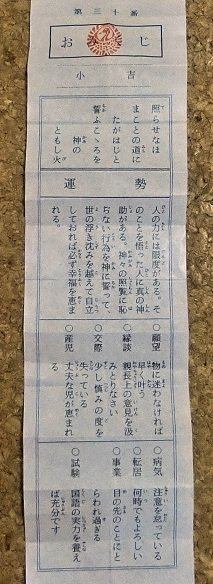 第三十番
おみくじ
小吉
照らせなほ
まことの道に
たがはじと
誓ふこゝろを
神の
ともし火
運勢
人の力には限度がある。そ
のことを悟った人に真の神
助がある。神々の照覧に恥
ぢない行為を神に誓って、
世の浮き沈みを越えて自立
しておれば必ず幸福を恵ま
れる。
○願望 物に迷わなければ
早く叶う
○縁談 親長上の意見を汲
みとりなさい
○交際 少し慎みの度を
失っている
○産児 丈夫な児が恵まれ
る
○病気 注意を怠っている
○転居 何時でもよろしい
○事業 目の先のことにと
らわれ過ぎる
○試験 国語の実力を養え
ば充分です